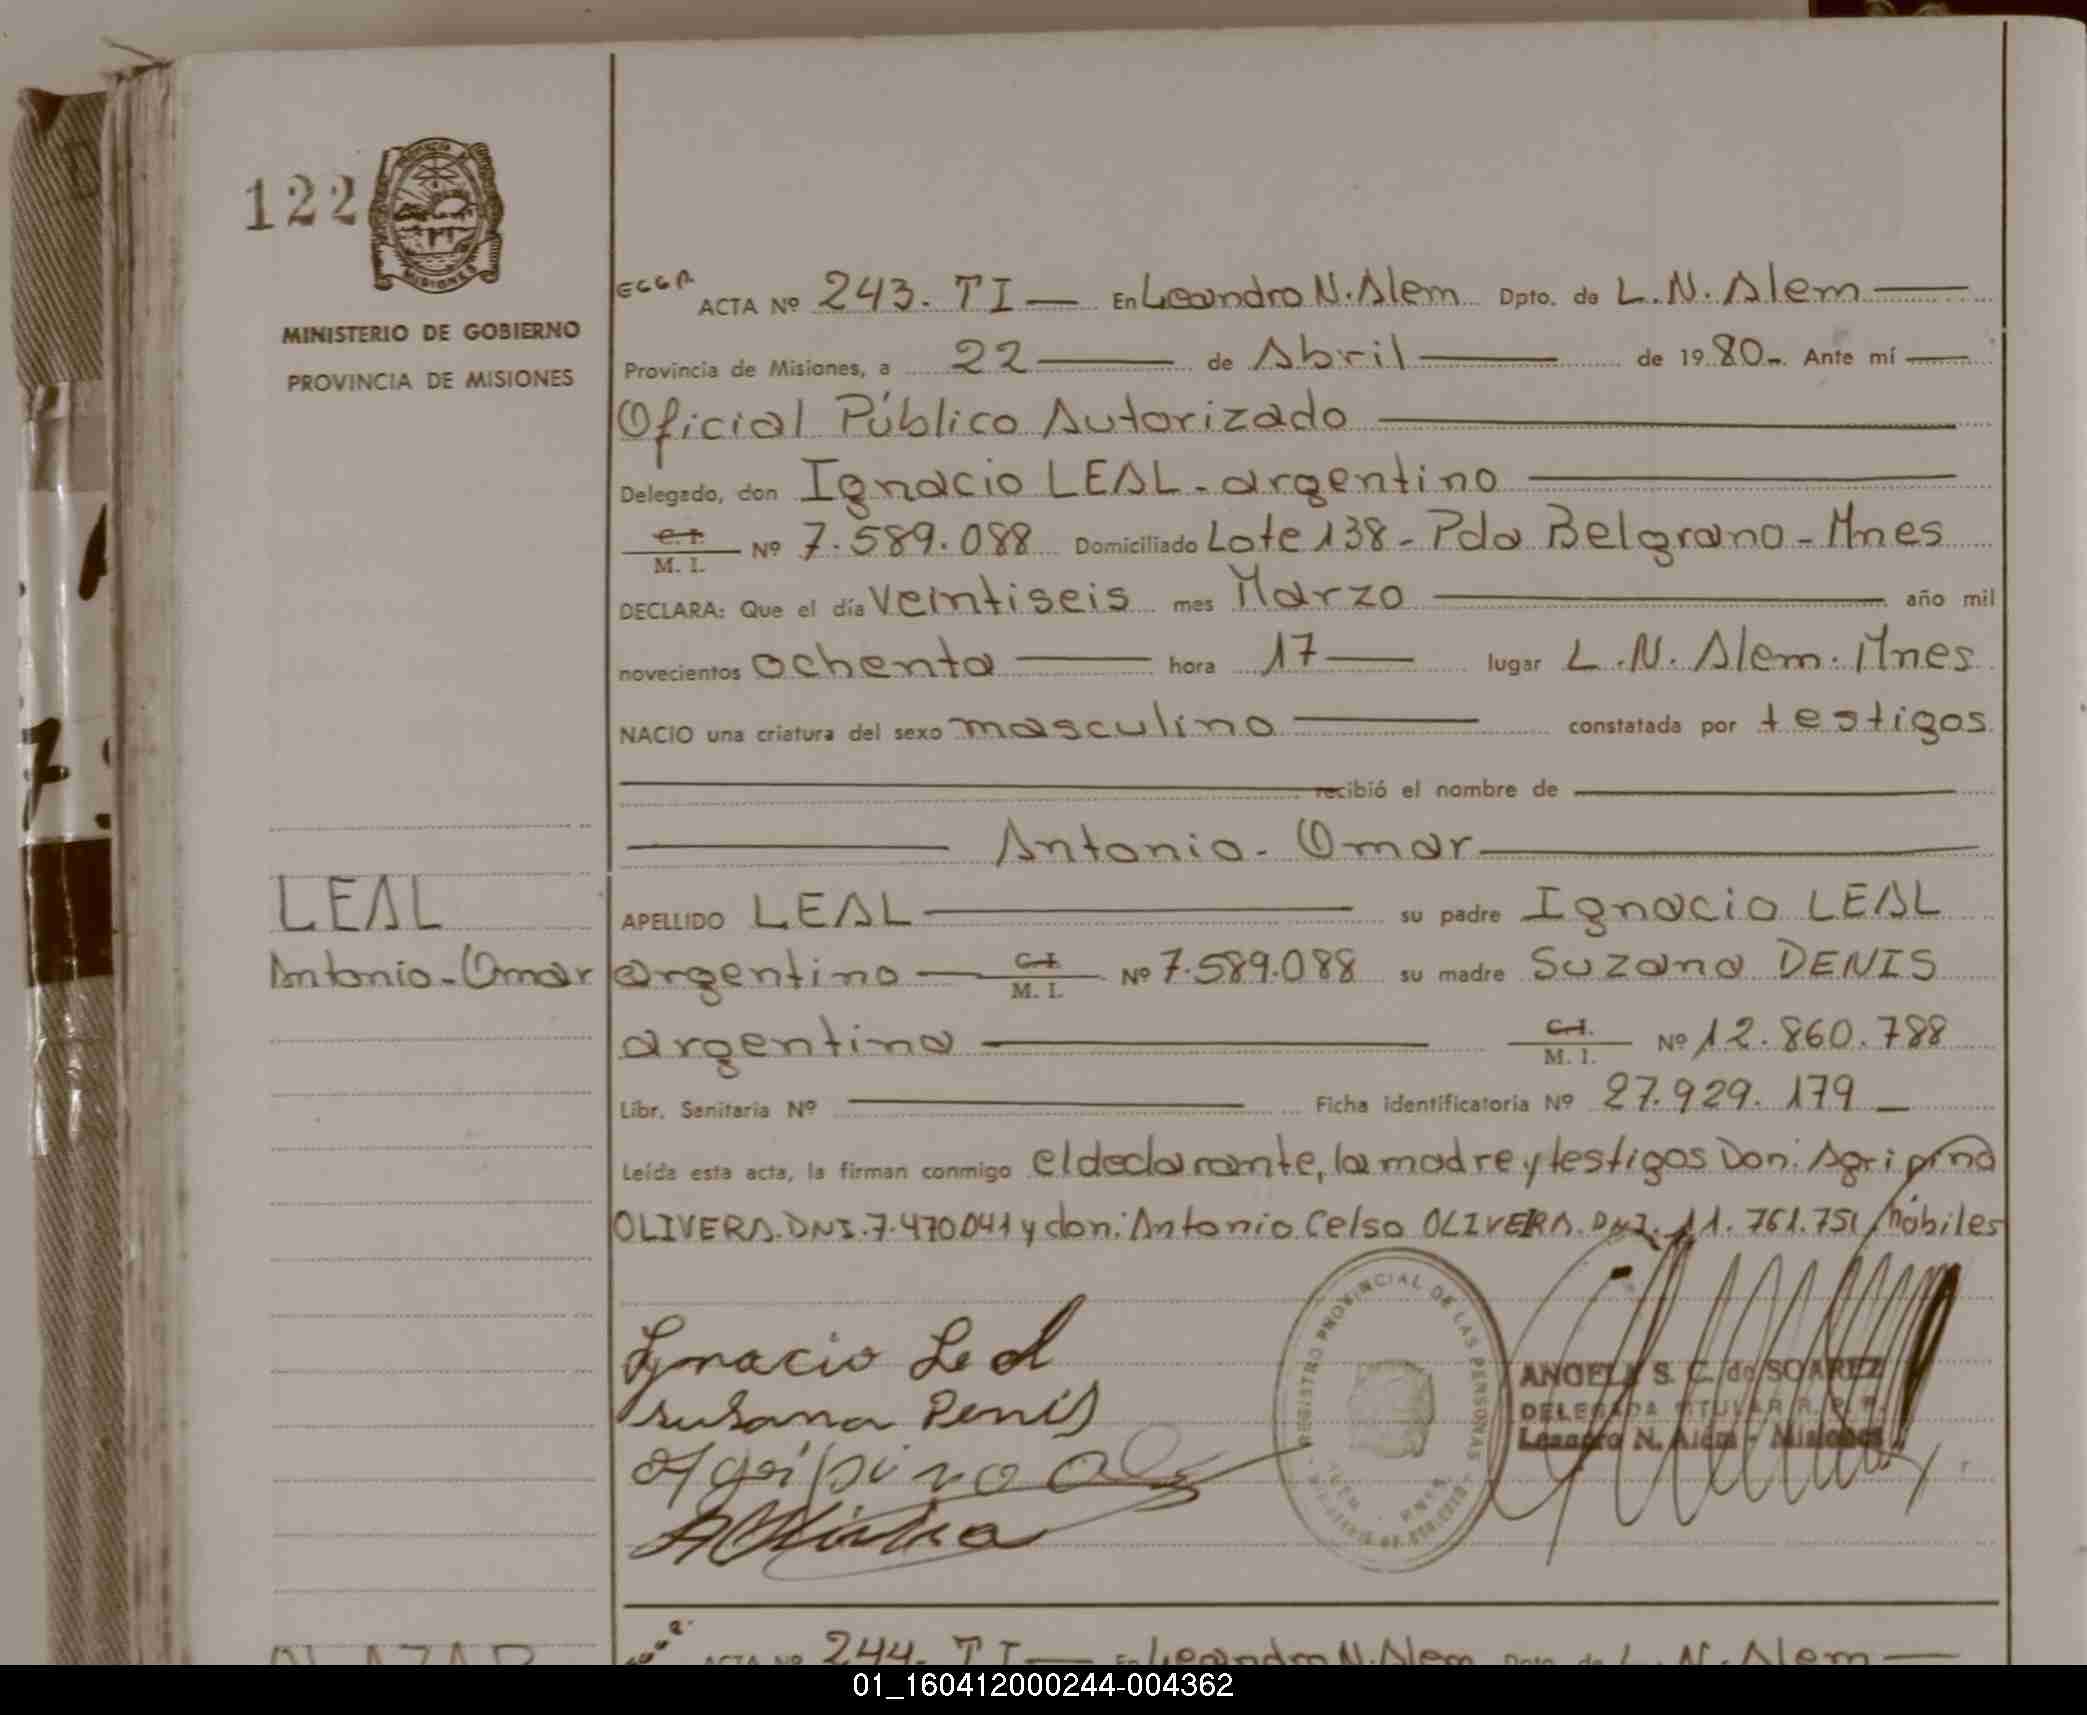 122
MISIONES
MINISTERIO DE GOBIERNO
PROVINCIA DE MISIONES
ACTA Nº 243. T I — En Leandro N. Alem Dpto. de L. N. Alem —
Provincia de Misiones, a 22 — de Abril — de 19 80-. Ante mí —
Oficial Público Autorizado
Delegado, don Ignacio LEAL - argentino
C. I. M. I. Nº 7.589.088 Domiciliado Lote 138 - Pda Belgrano - Mnes
DECLARA: Que el día veintiseis mes Marzo — año mil
novecientos ochenta — hora 17 — lugar L. N. Alem. Mnes
NACIO una criatura del sexo masculino — constatada por testigos
recibió el nombre de
Antonio - Omar
LEAL
Antonio - Omar
APELLIDO LEAL — su padre Ignacio LEAL
argentino — C. I. M. I. Nº 7.589.088 su madre Suzana DENIS
argentina — C. I. M. I. Nº 12.860.788
Libr. Sanitaria Nº — Ficha identificatoria Nº 27.929.179 —
Leída esta acta, la firman conmigo el declarante, la madre y testigos Don: Agripino
OLIVERA. DNI. 7.470041 y don: Antonio Celso OLIVERA. DNI. 11.761.751 hábiles
Ignacio Leal
Susana Denis
Agripino
REGISTRO PROVINCIAL DE LAS PERSONAS
ANGELA S. C. de SOAREZ
DELEGADA TITULAR R. P. P.
Leandro N. Alem - Misiones
ACTA Nº 244. T I — En Leandro N. Alem Dpto. de L. N. Alem —
01_160412000244-004362